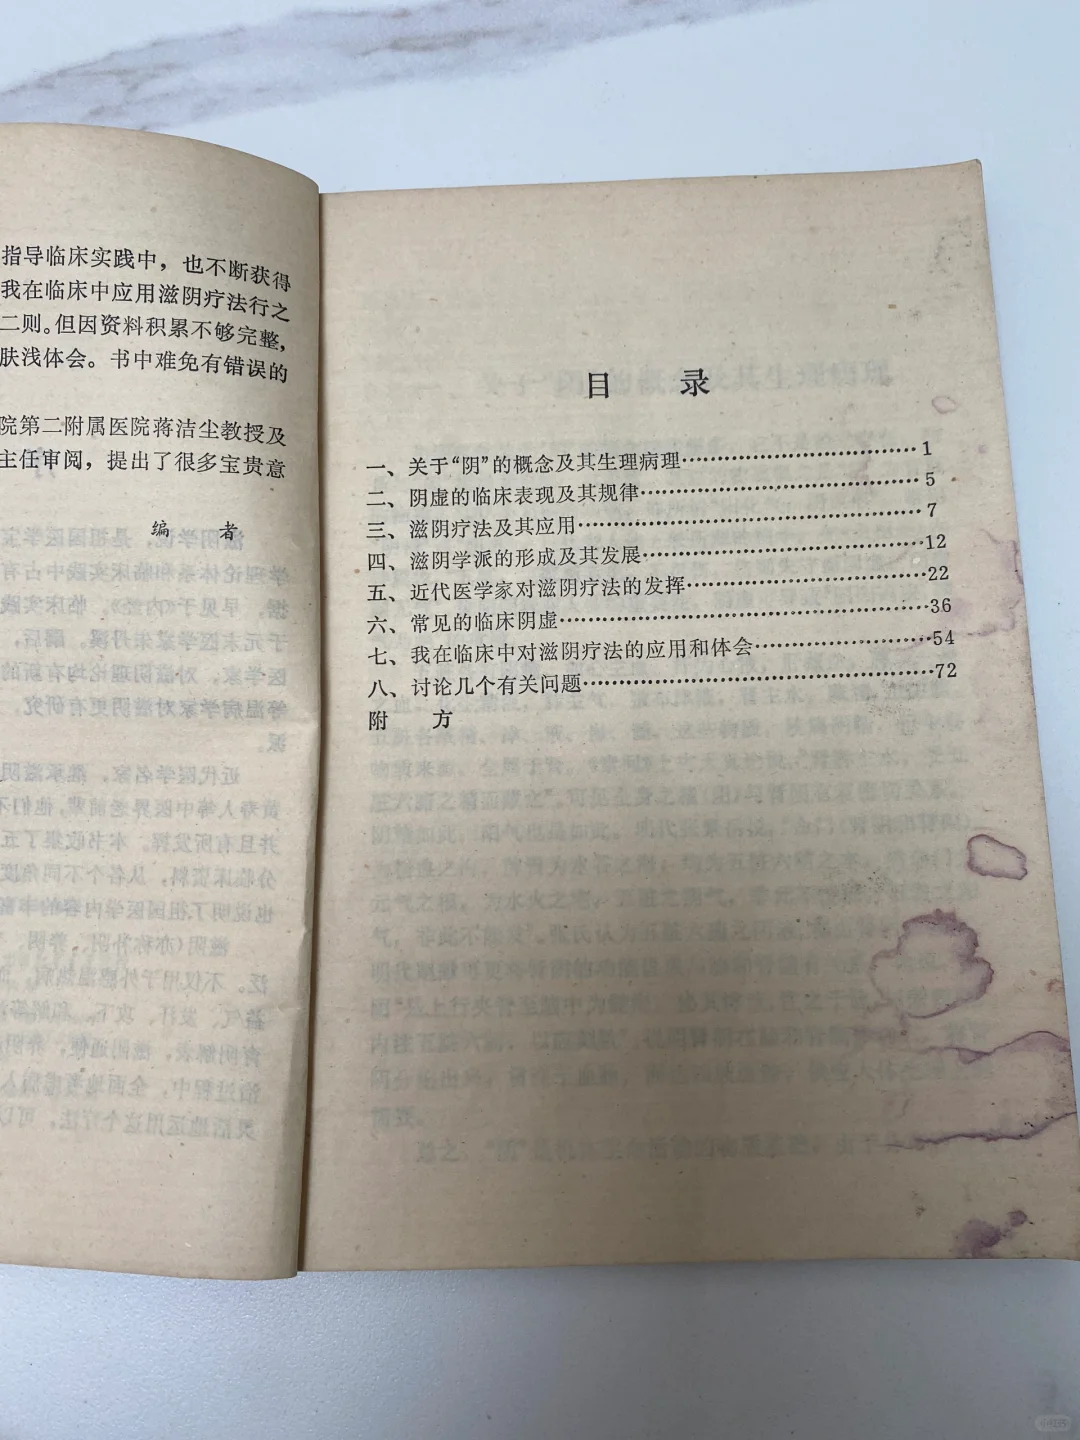 指导临床实践中，也不断获得
我在临床中应用滋阴疗法行之
二则。但因资料积累不够完整，
肤浅体会。书中难免有错误的
院第二附属医院蒋洁尘教授及
主任审阅，提出了很多宝贵意
编 者
目 录
一、关于“阴”的概念及其生理病理……………………………1
二、阴虚的临床表现及其规律……………………………5
三、滋阴疗法及其应用……………………………7
四、滋阴学派的形成及其发展……………………………12
五、近代医学家对滋阴疗法的发挥……………………………22
六、常见的临床阴虚……………………………36
七、我在临床中对滋阴疗法的应用和体会……………………………54
八、讨论几个有关问题……………………………72
附 方
小红书